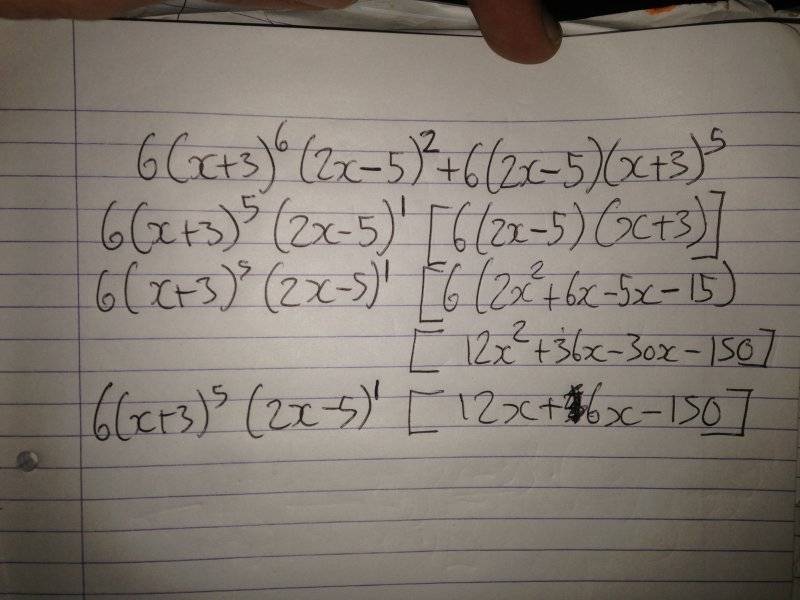 6(x+3)⁶(2x-5)²+6(2x-5)(x+3)⁵
6(x+3)⁵(2x-5)¹[6(2x-5)(x+3)]
6(x+3)⁵(2x-5)¹[6(2x²+6x-5x-15)
[12x²+36x-30x-150]
6(x+3)⁵(2x-5)¹[12x+6x-150]